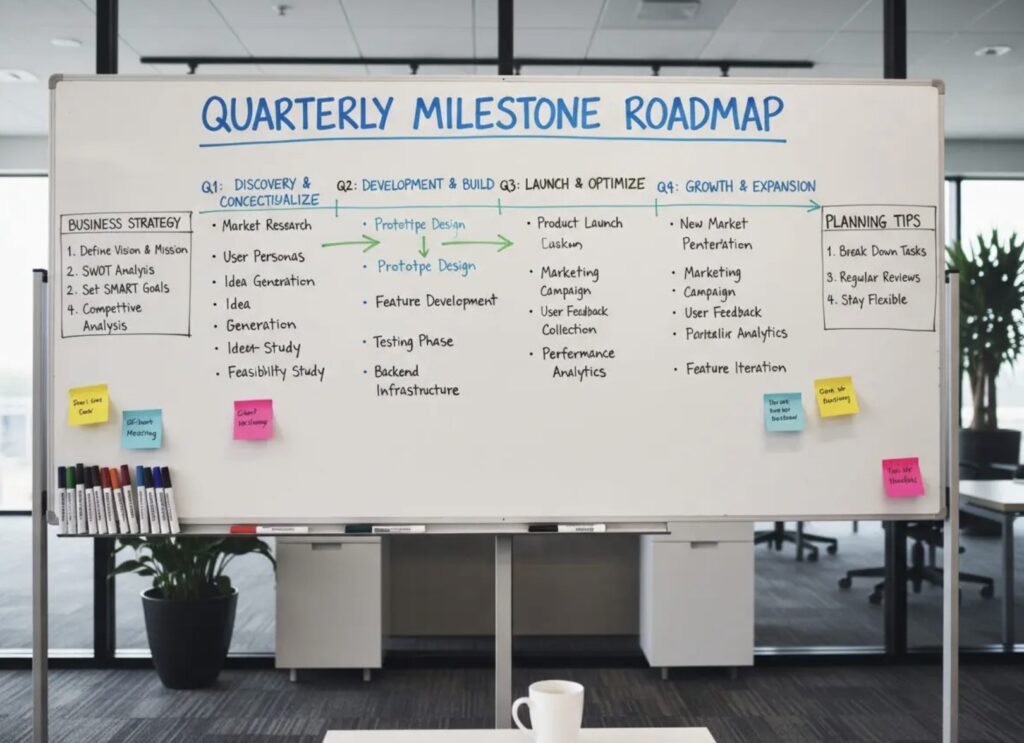 QUARTERLY MILESTONE ROADMAP
Q1: DISCOVERY &
CONCECTIUALIZE
Q2: DEVELOPMENT & BUILD
Q3: LAUNCH & OPTIMIZE
Q4: GROWTH & EXPANSION
BUSINESS STRATEGY
1. Define Vision & Mission
2. SWOT Analyis
2. Set SMART Goals
4. Compettive
Analysis
• Market Research
• User Personas
• Idea Generation
• Idea
• Generation
• Study
• Feasibility Study
• Prototipe Design
• Prototpe Design
• Feature Development
• Testing Phase
• Backend
Infrastructure
• Product Launch
• Marketing
Campaign
• User Feedback
Collection
• Performance
Analytics
• New Market
Penteration
• Marketing
• Campaign
• User Feedback
• Analytics
• Feature Iteration
PLANNING TIPS
1. Break Down Tasks
3. Regular Reviews
4. Stay Flexible